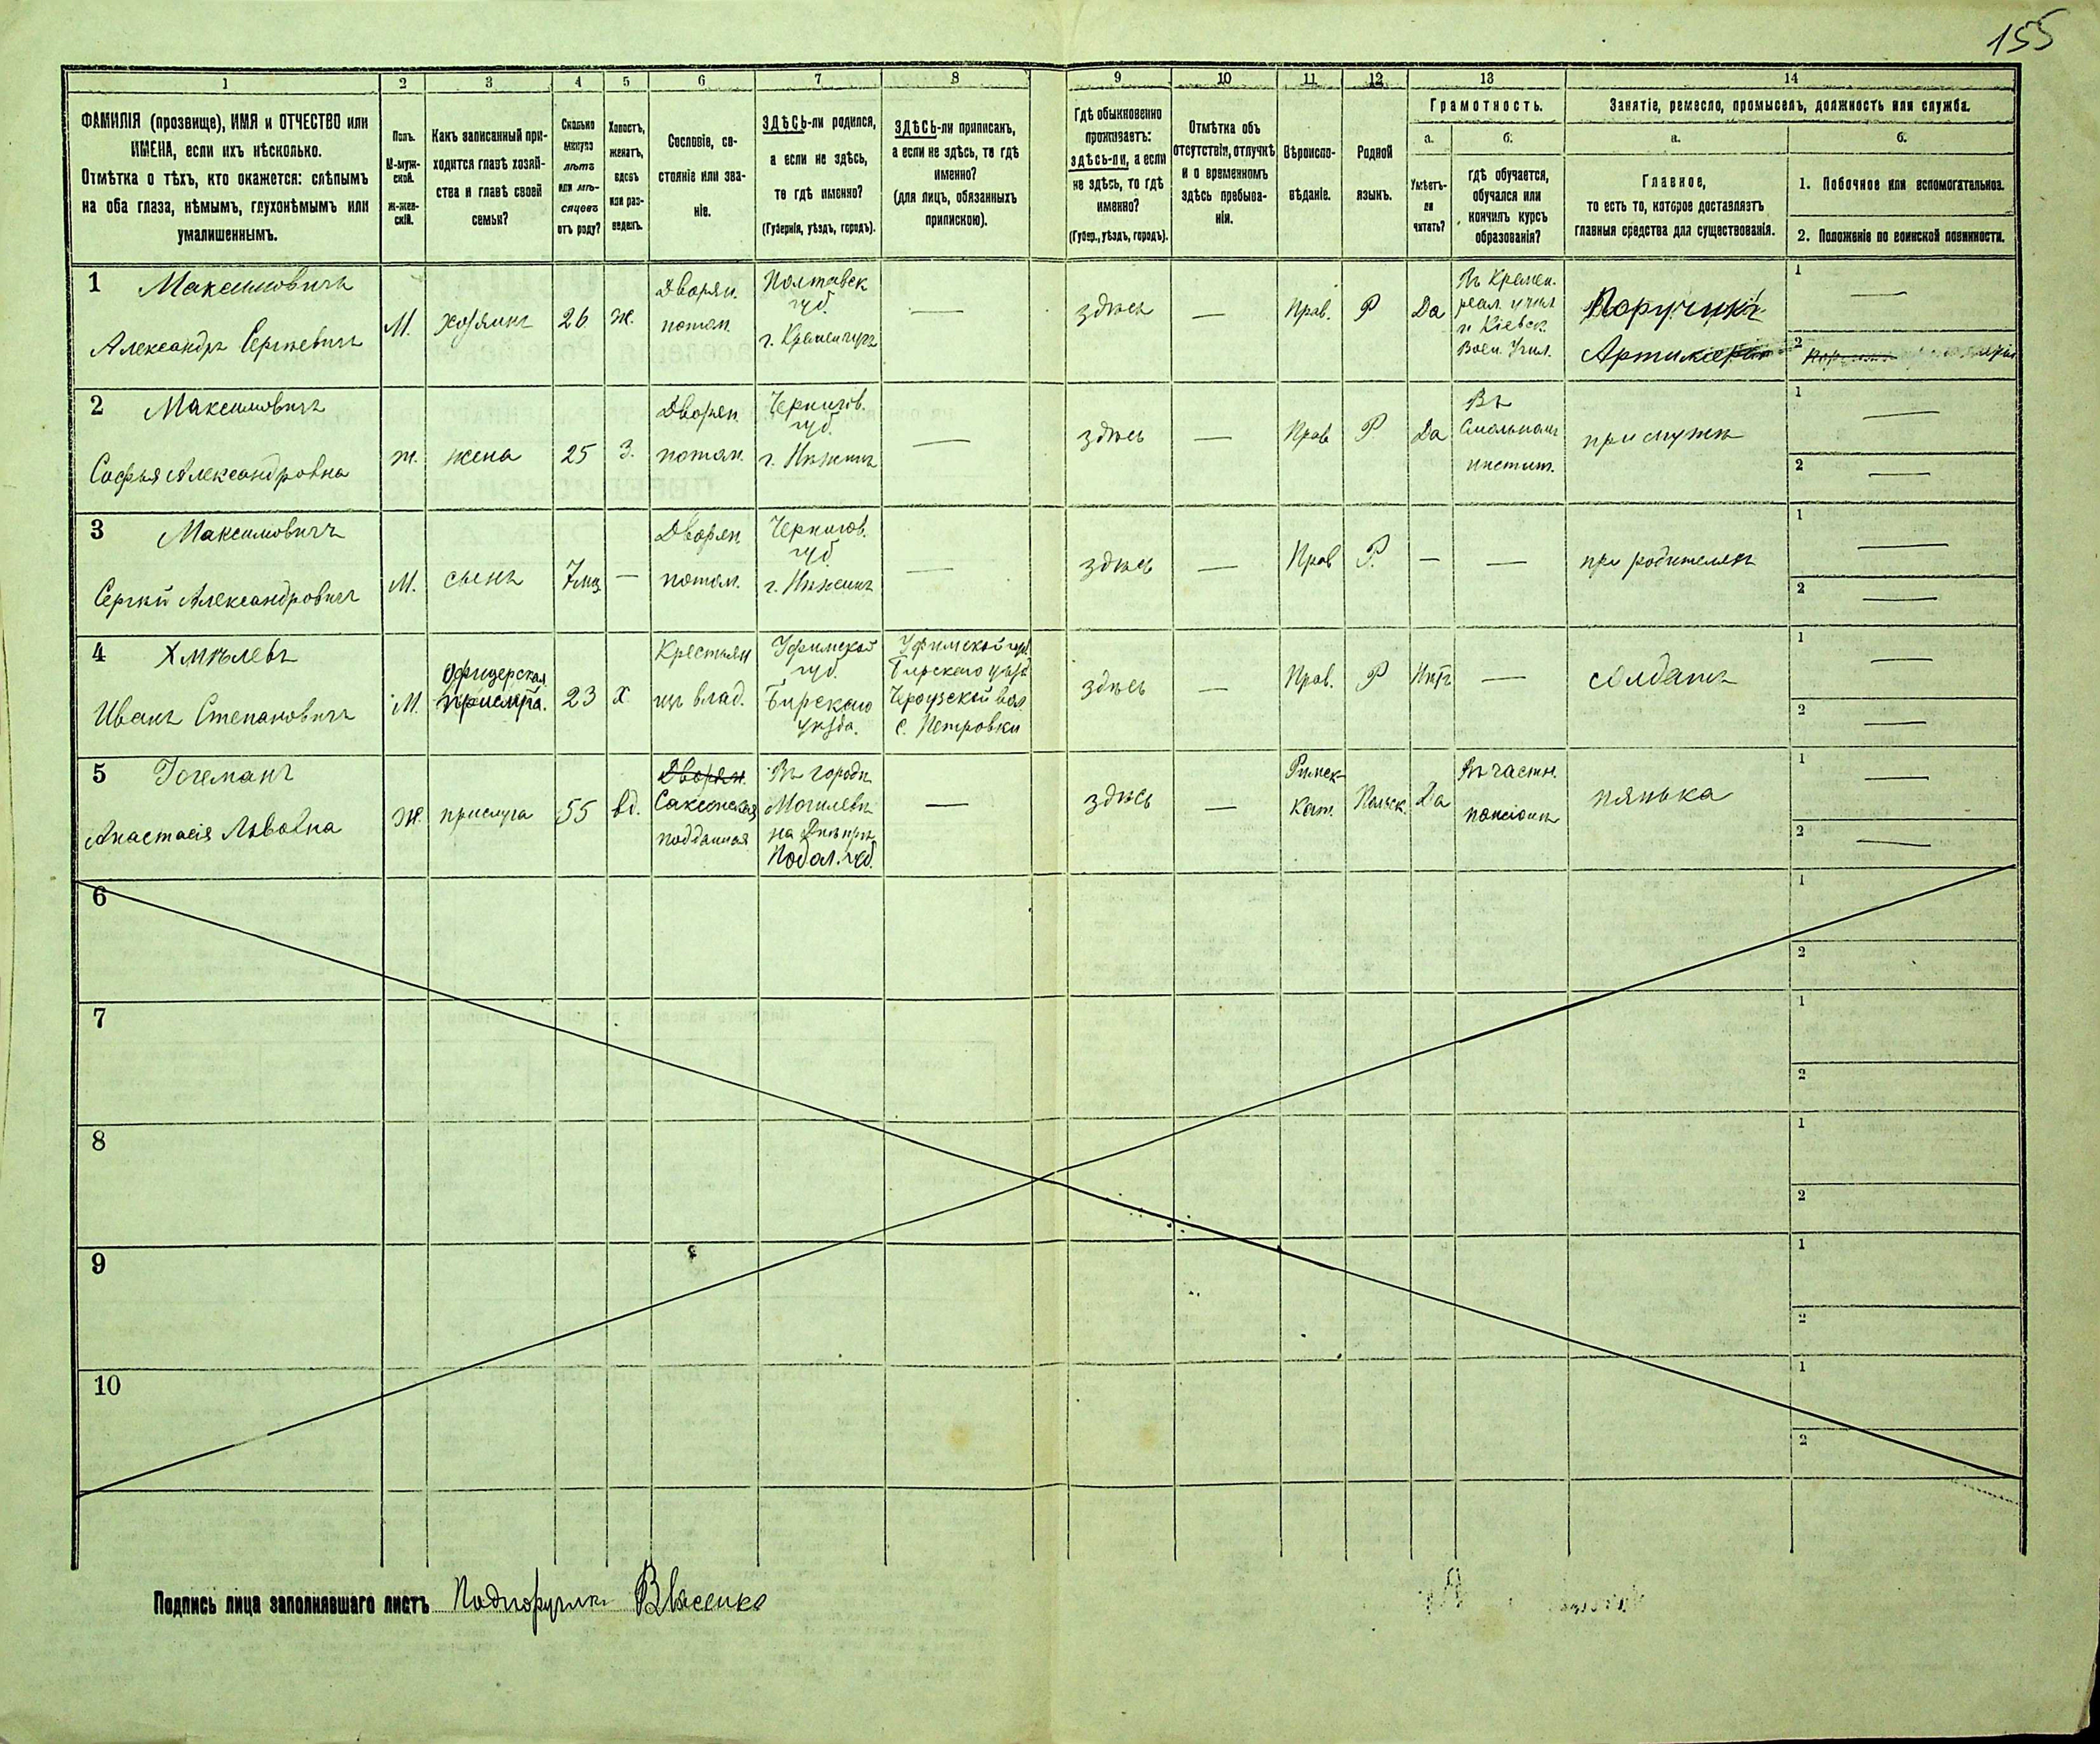 155
1 2 3 4 5 6 7 8 9 10 11 12 13 14
ФАМИЛІЯ (прозвище), ИМЯ и ОТЧЕСТВО или
ИМЕНА, если ихъ нѣсколько.
Отмѣтка о тѣхъ, кто окажется: слѣпымъ
на оба глаза, нѣмымъ, глухонѣмымъ или
умалишеннымъ.
Полъ.
М-муж-
ской.
Ж-жен-
скій.
Какъ записанный при-
ходится главѣ хозяй-
ства и главѣ своей
семьи?
Сколько
минуло
лѣтъ
или мѣ-
сяцевъ
отъ роду?
Холостъ,
женатъ,
вдовъ
или раз-
веденъ.
Сословіе, со-
стояніе или зва-
ніе.
ЗДѢСЬ-ли родился,
а если не здѣсь,
то гдѣ именно?
(Губернія, уѣздъ, городъ).
ЗДѢСЬ-ли приписанъ,
а если не здѣсь, то гдѣ
именно?
(для лицъ, обязанныхъ
припискою).
Гдѣ обыкновенно
проживаетъ:
здѣсь-ли, а если
не здѣсь, то гдѣ
именно?
(Губер., уѣздъ, городъ).
Отмѣтка объ
отсутствіи, отлучкѣ
и о временномъ
здѣсь пребыва-
ніи.
Вѣроиспо-
вѣданіе.
Родной
языкъ.
Грамотность.
а.
Умѣетъ-
ли
читать?
б.
гдѣ обучается,
обучался или
кончилъ курсъ
образованія?
Занятіе, ремесло, промыселъ, должность или служба.
а.
Главное,
то есть то, которое доставляетъ
главныя средства для существованія.
б.
1. Побочное или вспомогательное.
2. Положеніе по воинской повинности.
1 Максимовичъ
Александръ Сергѣевичъ
М.
хозяинъ
26
ж.
Дворян.
потом.
Полтавск
губ.
г. Кременчугъ
—
здѣсь
—
Прав.
Р
Да
Въ Кремен.
реал. учил
и Кіевск.
Воен. Учил.
Поручикъ
Артиллеріи
1 —
2
2 Максимовичъ
Софья Александровна
ж.
жена
25
З.
Дворян.
потом.
Чернигов.
губ.
г. Нѣжинъ
—
здѣсь
—
Прав
Р.
Да
Въ
Смольномъ
инстит.
при мужѣ
1 —
2 —
3 Максимовичъ
Сергѣй Александровичъ
М.
сынъ
7 мц
—
Дворян
потом.
Чернигов.
губ.
г. Нѣжинъ
—
здѣсь
—
Прав
Р.
—
—
при родителяхъ
1 —
2 —
4 Хмѣлевъ
Иванъ Степановичъ
М.
Офицерская
прислуга.
23
х
Крестьян
изъ влад.
Уфимской
губ.
Бирскаго
уѣзда.
Уфимской губ.
Бирскаго уѣзд
волл.
с. Петровки
здѣсь
—
Прав.
Р
Нѣтъ
—
солдатъ
1 —
2 —
5 Гогеманъ
Анастасія Львовна
Ж.
прислуга
55
вд.
Дворян.
Саксонская
подданная
Въ городѣ
Могилевѣ
на Днѣпрѣ
Подол. губ.
—
здѣсь
—
Римск-
Кат.
Польск.
Да
Въ частн.
пансіонѣ
нянька
1 —
2 —
6 1
2
7 1
2
8 1
2
9 1
2
10 1
2
Подпись лица заполнявшаго листъ Подпоручикъ Власенко